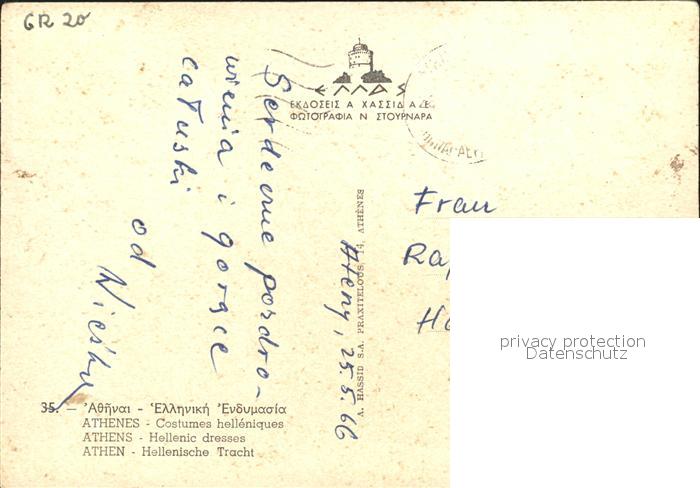 GR 20
ΕΛΛΑΣ
ΕΚΔΟΣΕΙΣ Α ΧΑΣΣΙΔ Α.Ε.
ΦΩΤΟΓΡΑΦΙΑ Ν ΣΤΟΥΡΝΑΡΑ
Ateny, 25.5.66
Serdeczne pozdro-
wienia i gorące
całuski
od
A. HASSID S.A. PRAXITELOUS, 14, ATHÈNES
Frau
privacy protection
Datenschutz
35. — Ἀθῆναι - Ἑλληνική Ἐνδυμασία
ATHENES - Costumes helléniques
ATHENS - Hellenic dresses
ATHEN - Hellenische Tracht